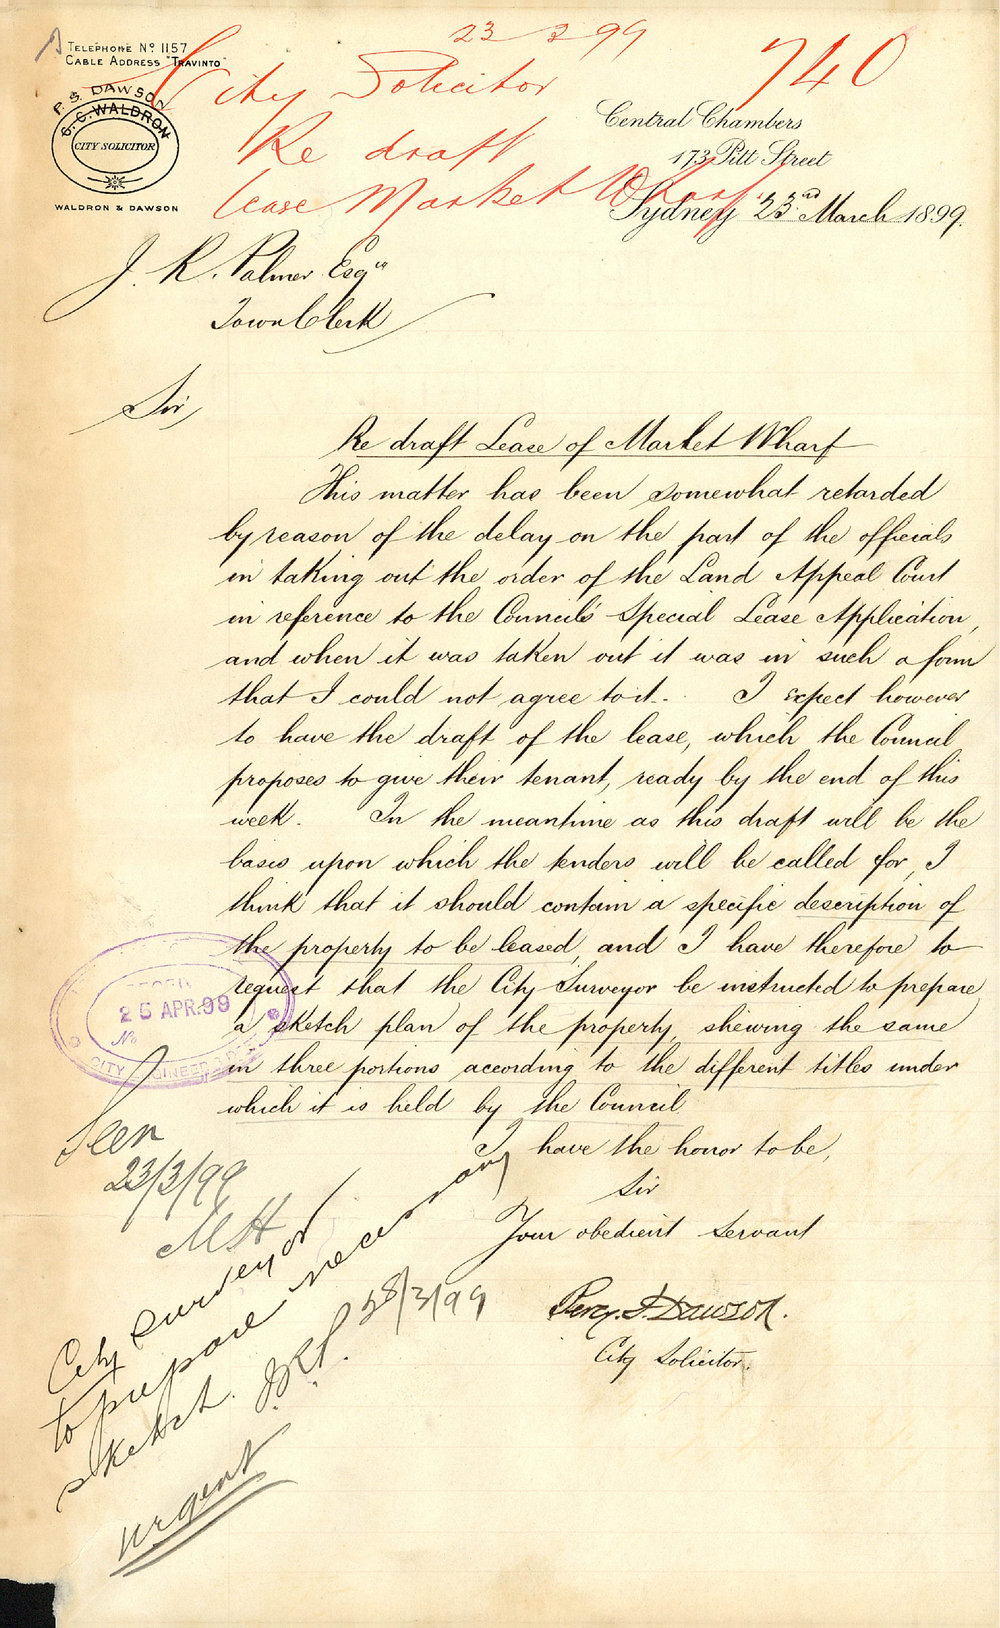 23 3 99
740
TELEPHONE Nº 1157
CABLE ADDRESS "TRAVINTO"
City Solicitor
Re draft
lease Market Wharf
P. S. DAWSON
G. C. WALDRON
CITY SOLICITOR
WALDRON & DAWSON
Central Chambers
173 Pitt Street
Sydney 23rd March 1899.
J. R. Palmer Esqre
Town Clerk
Sir,
Re draft Lease of Market Wharf
This matter has been somewhat retarded
by reason of the delay on the part of the officials
in taking out the order of the Land Appeal Court
in reference to the Council's Special Lease Application,
and when it was taken out it was in such a form
that I could not agree to it. I expect however
to have the draft of the lease, which the Council
proposes to give their tenant, ready by the end of this
week. In the meantime as this draft will be the
basis upon which the tenders will be called for, I
think that it should contain a specific description of
the property to be leased, and I have therefore to
request that the City Surveyor be instructed to prepare
a sketch plan of the property, shewing the same
in three portions according to the different titles under
which it is held by the Council.
I have the honor to be,
Sir
Your obedient Servant
Percy. S. Dawson.
City Solicitor.
25 APR. 99
No
CITY
Seen
23/3/99
City Surveyor
to prepare necessary
sketch. JRP. 28/3/99
Urgent